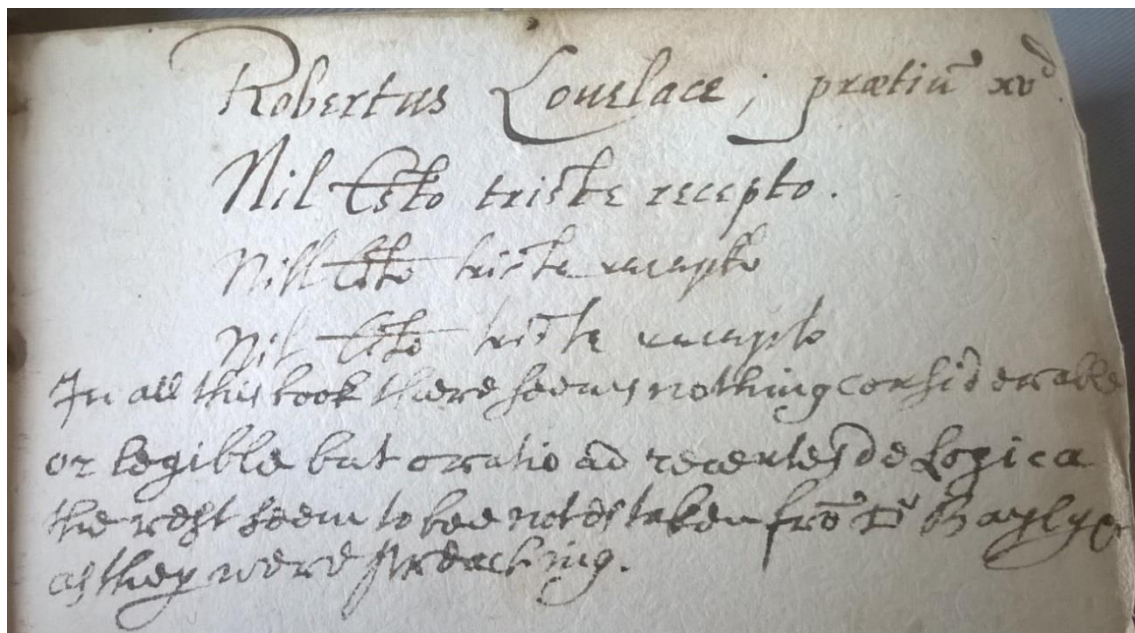 Robertus Louelace; prætiū xvd.
Nil Esto triste recepto.
Nill Esto triste recepto
Nil Esto triste recepto
In all this book there seems nothing considerable
or legible but oratio ad recentes de Logica
the rest seem to bee notes taken frō Dr Baylye
as they were preaching.